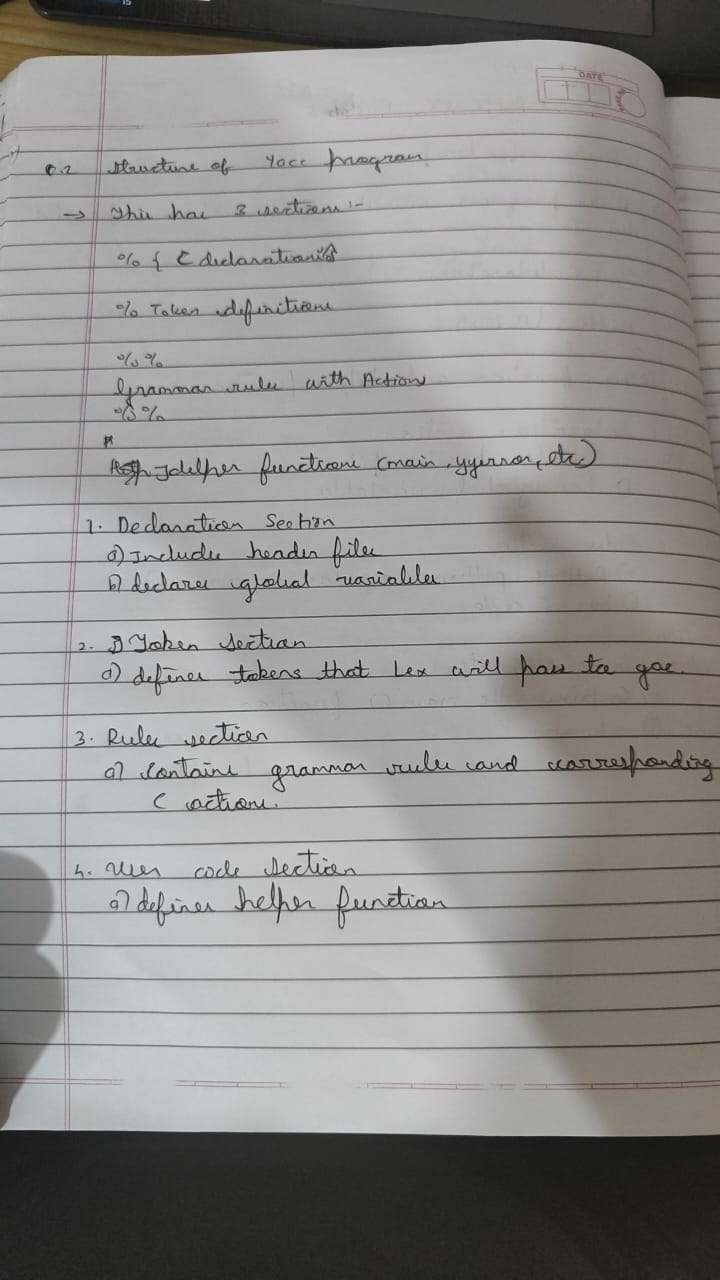 DATE
Q.2 Structure of Yacc program
→ This has 3 sections :-
% { C declarations
% Token definitions
%%
Grammar rules with Action
%%
Helper functions (main, yyerror, etc)
1. Declaration Section
a) Includes header files
b) declares global variables
2. Token section
a) defines tokens that Lex will pass to
3. Rules section
a) Contains grammar rules and corresponding
C actions.
4. User code section
a) defines helper function